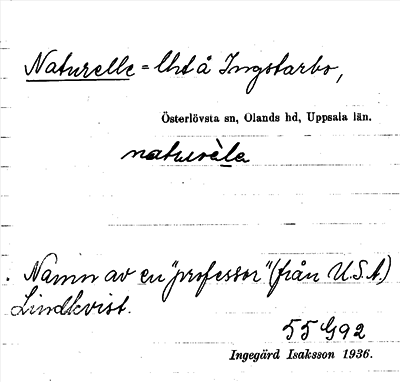 Naturelle = lht å Ingstarbo,
Österlövsta sn, Olands hd, Uppsala län.
naturèla
. Namn av en "professor" (från U.S.A.)
Lindkvist.
55 G 92
Ingegärd Isaksson 1936.